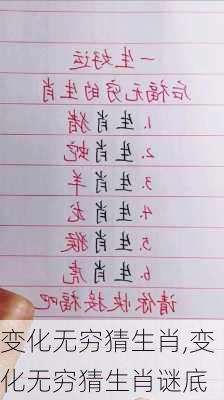 一生好运
后福无穷的生肖
1. 生肖猪
2. 生肖蛇
3. 生肖羊
4. 生肖龙
5. 生肖猴
6. 生肖虎
请你快接福吧
变化无穷猜生肖,变
化无穷猜生肖谜底